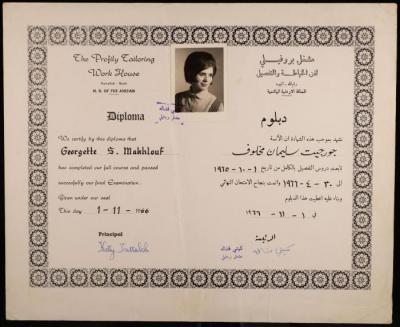 The Profily Tailoring
Work House
Ramallah - Bireh
H. K. OF THE JORDAN
Diploma
We certify by this diploma that
Georgette S. Makhlouf
has completed our full course and passed
successfully our final Examination.
Given under our seal
This day 1-11-966
Principal
Ketty Fattaleh
مشغل بروفيلي
لفن الخياطة والتفصيل
رام الله - البيره
المملكة الاردنية الهاشمية
دبلوم
نشهد بموجب هذه الشهادة ان الآنسة
جورجيت سليمان مخلوف
دروس التفصيل بالكامل من تاريخ ١-١٠-١٩٦٥
الى ٣٠-٤-١٩٦٦ وانهت بنجاح الامتحان النهائي
وبناء عليه اعطيت هذا الدبلوم
في ١-١١-١٩٦٦
الرئيسة